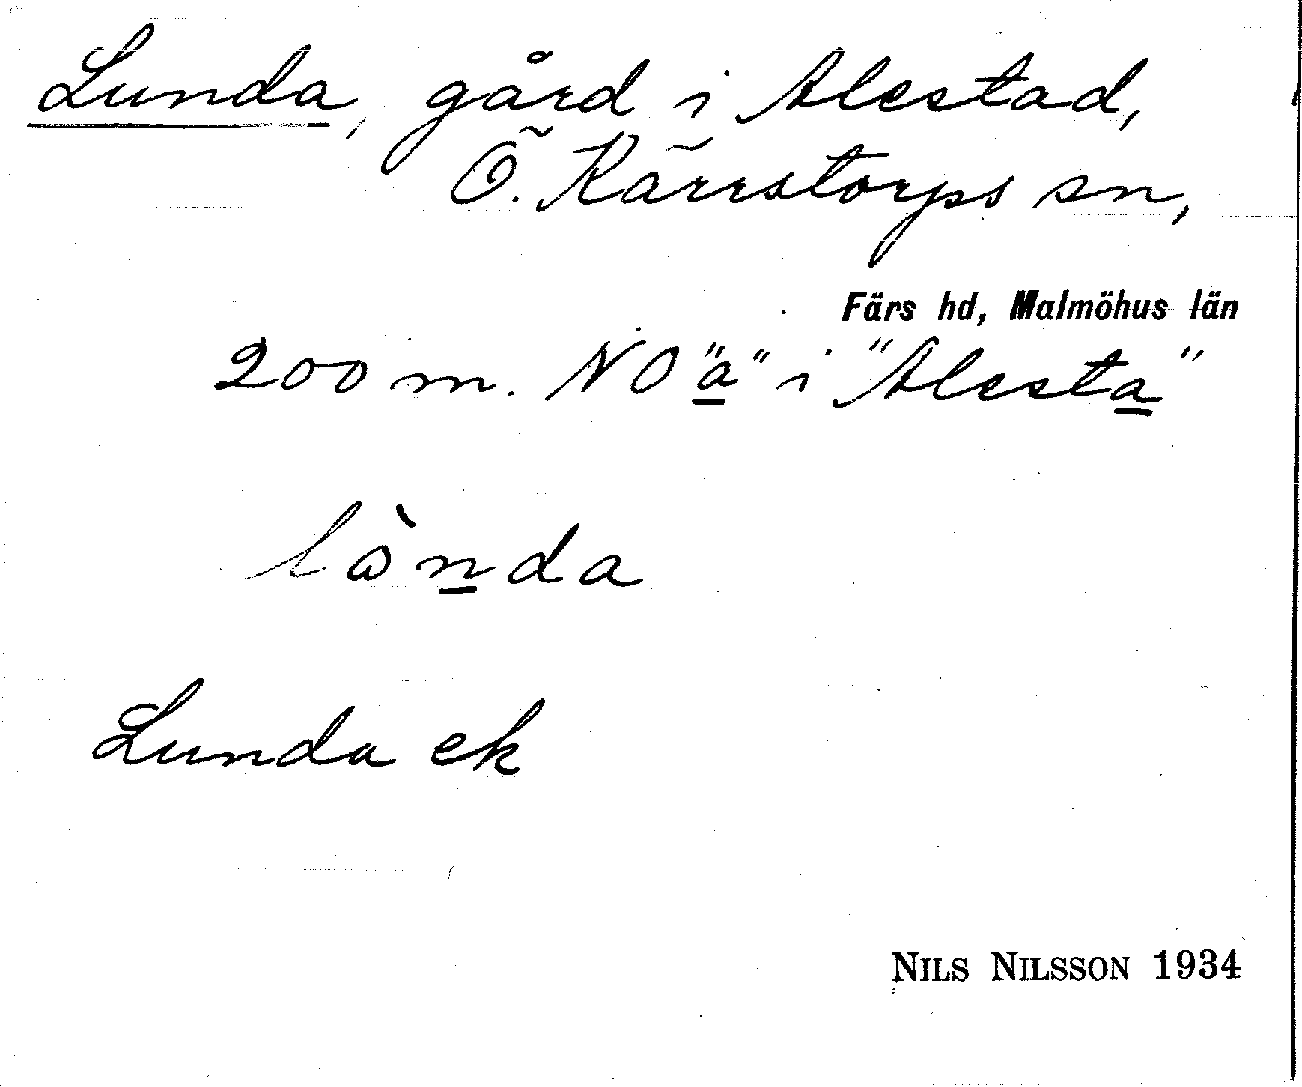 Lunda, gård i Alestad,
Ö. Kärrstorps sn,
Färs hd, Malmöhus län
200 m. NO "a" i "Alesta"
lò̀nda
Lunda ek
NILS NILSSON 1934